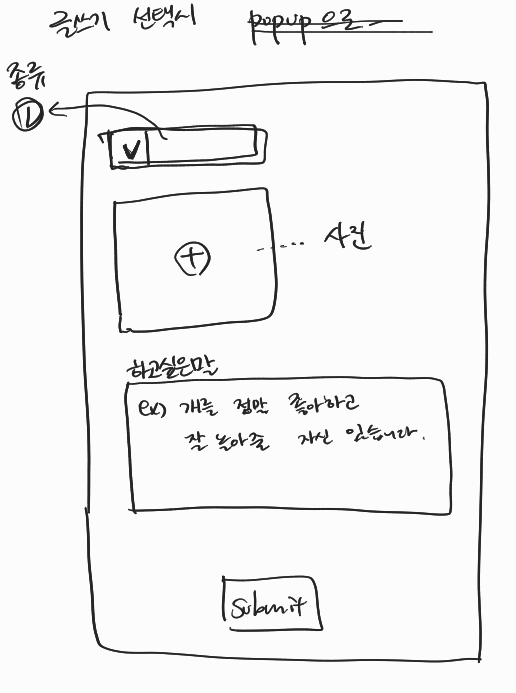 글쓰기 선택시 popup으로
종류
①
V
+
사진
하고싶은말
ex) 개를 정말 좋아하고
잘 놀아줄 자신 있습니다.
Submit